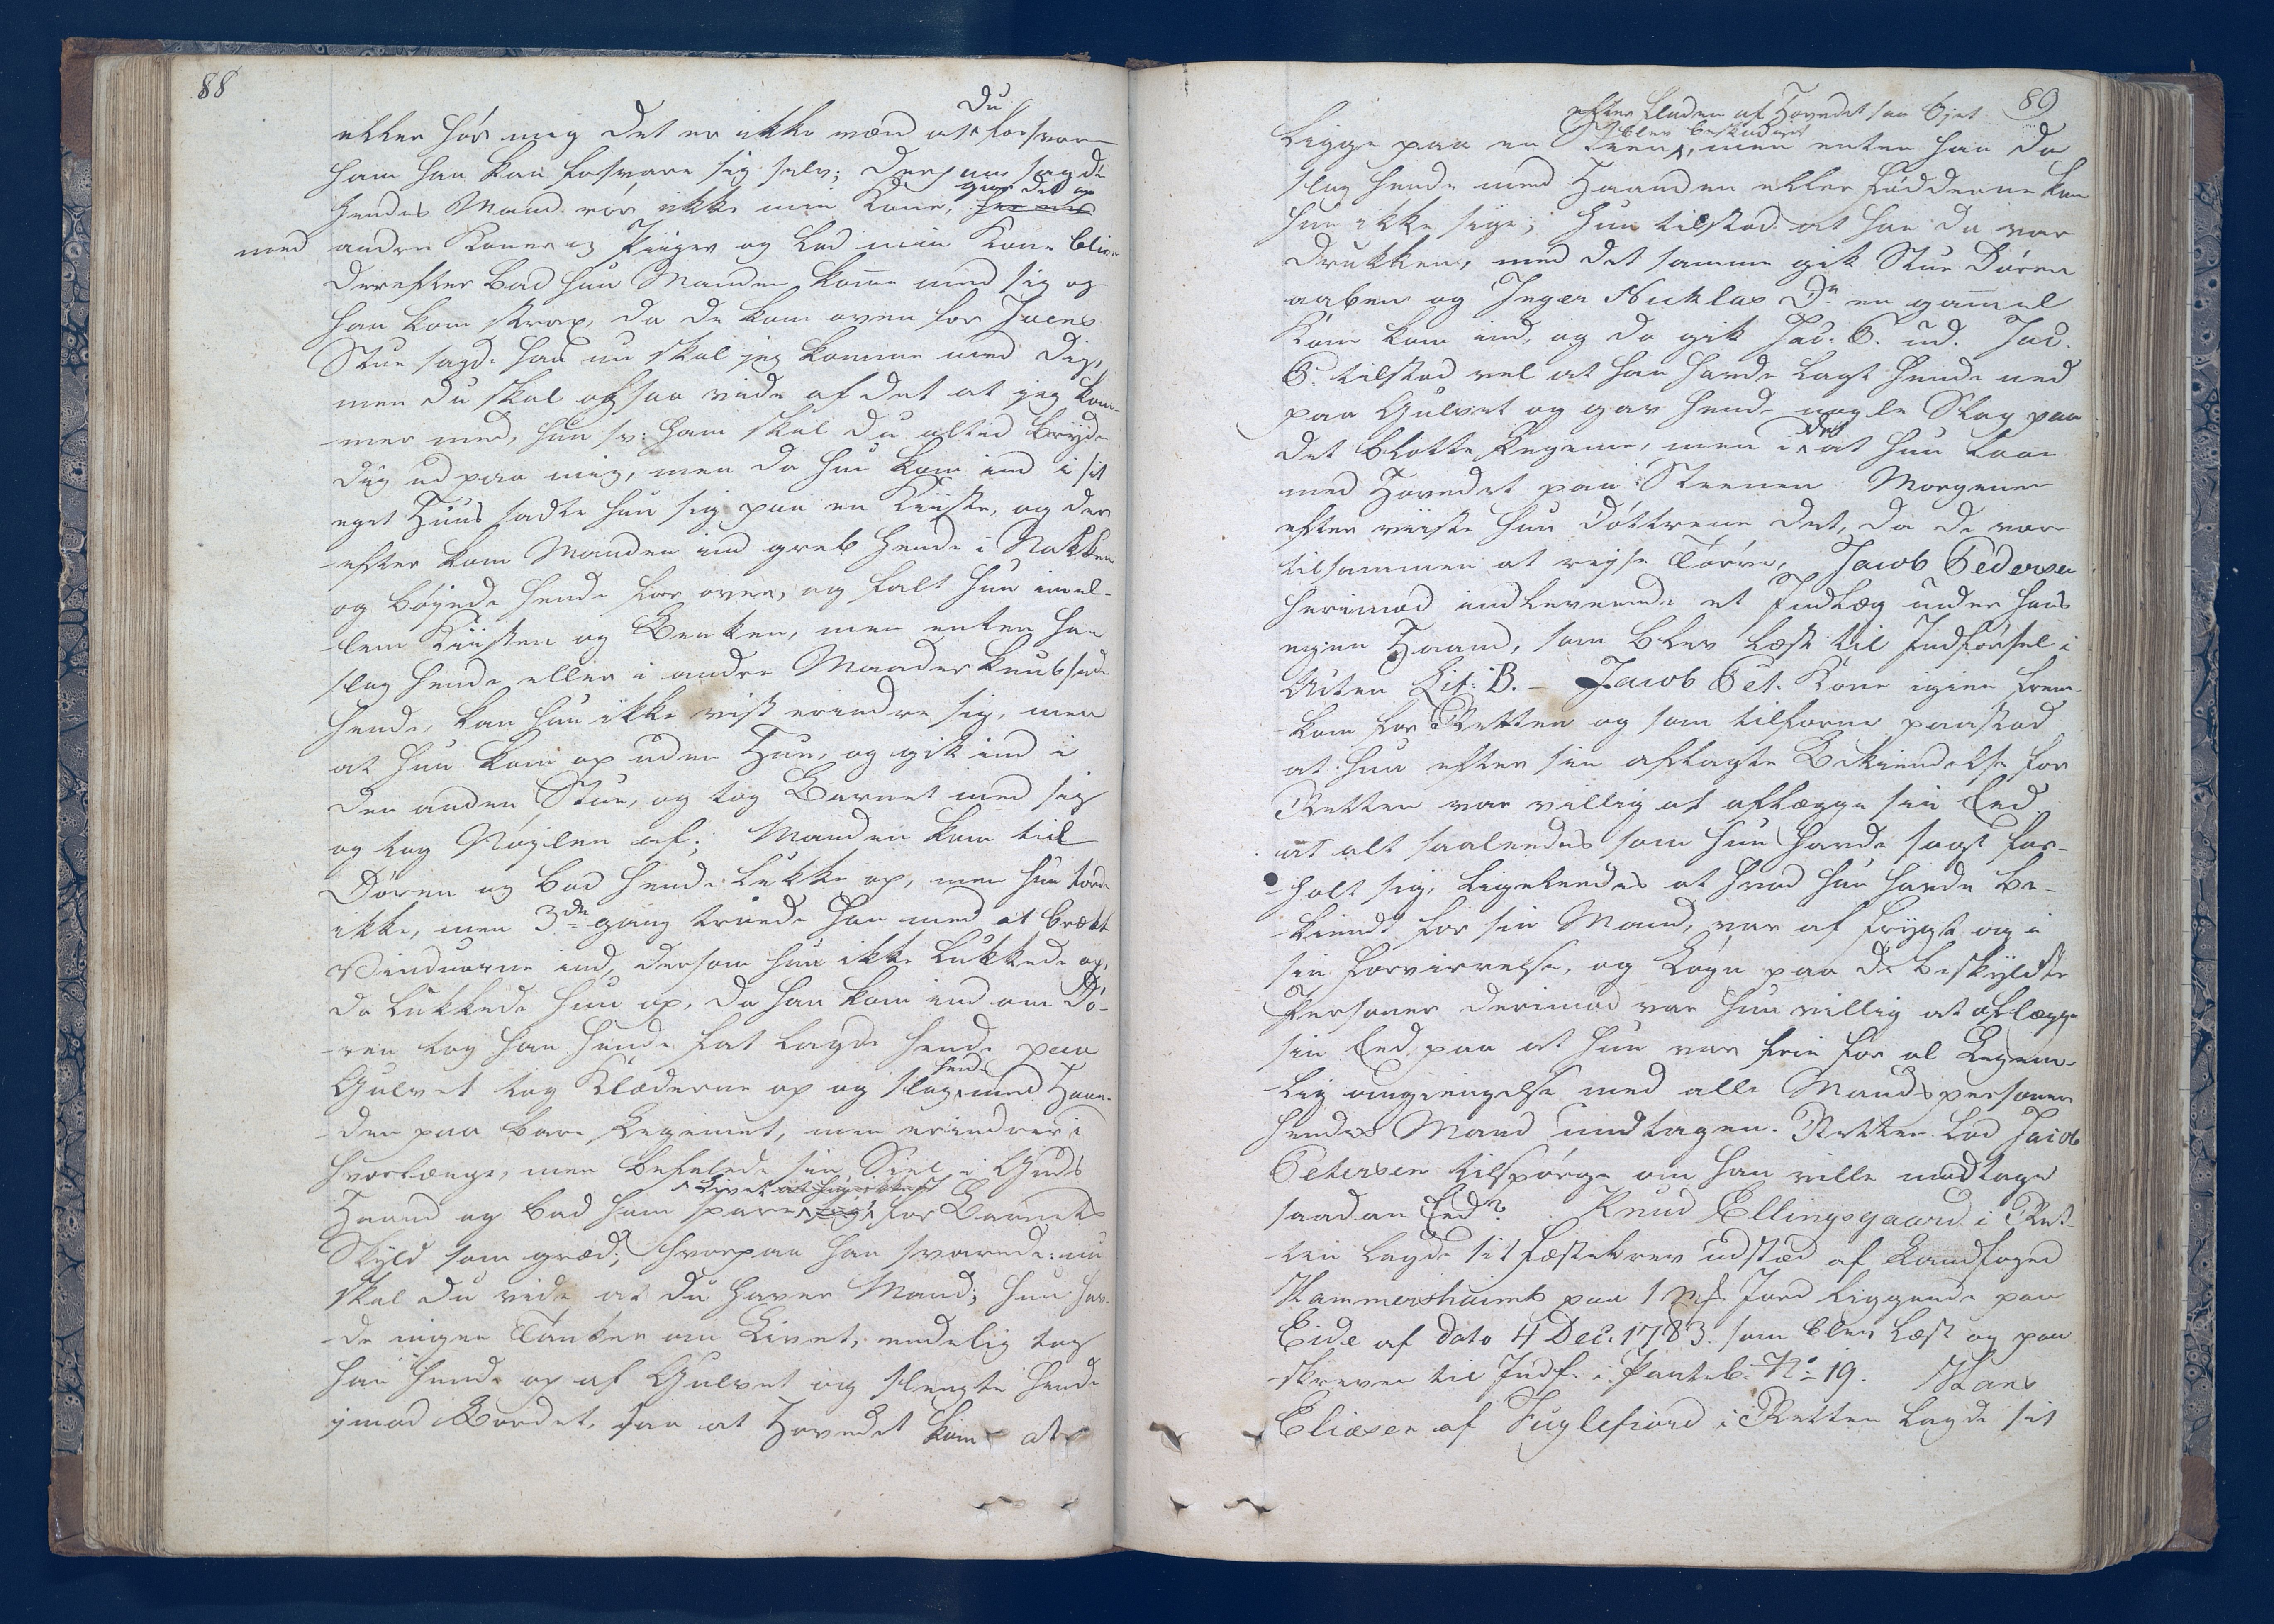 88
Du
eller hør mig det er ikke værd at forsvare
ham han kan forsvare sig selv; derpaa sagde
giør det op
hendes Mand rør ikke min Kone,
med andre Koner og Piiger og lad min Kone blive
derefter bad hun Manden komme med sig og
han kom strax, da de kom oven for Joens
Stue sagde han nu skal jeg komme med dig,
men du skal ogsaa vide af det at jeg kom-
mer med, hun sv: ham skal du altid bryde
dig ud paa mig, men da hun kom ind i sit
eget Huus satte hun sig paa en Kiiste, og der
efter kom Manden ind greb hende i Nakken
og bøyede hende for over, og falt hun imel-
lem Kiisten og Benken, men enten han
slog hende eller i andre Maader knubsede
hende, kan hun ikke vist erindre sig, men
at hun kom op uden Hue, og gik ind i
den anden Stue, og tog Barnet med sig
og tog Nøylen af; Manden kom til
Døren og bad hende lukke op, men hun torde
ikke, men 3de gang truede han med at brække
Vinduerne ind, dersom hun ikke lukkede op,
da lukkede hun op, da han kom ind om Dø-
ren tog han hende fat lagde hende paa
hende
Gulvet tog Klæderne op og slog med Haan-
den paa bare Legemet, men erindrer i
hvorlænge, men befalede sin Siel i Guds
Livet
Haand og bad ham spare for Barnets
Skyld som græd; hvorpaa han svarede: nu
skal du vide at du haver Mand; hun hav-
de ingen Tanker om Livet, endelig tog
han hende op af Gulvet og slengte hende
imod Bordet, saa at Hovedet kom at
89
efter Enden af Hovedet saa Øjet
blev beskadiget
ligge paa en Steen, men enten han da
slog hende med Haanden eller Fødderne kan
hun ikke sige; hun tilstod at han da var
drukken, med det samme gik Stue Døren
aaben og Inger Nicklas Dr en gammel
Kone kom ind, og da gik Jac. P. ud. Jac.
P. tilstod vel at han havde lagt hende ned
paa Gulvet og gav hende nogle Slag paa
det
det blotte Legeme, men i at hun laae
med Hovedet paa Steenen Morgenen
efter viiste hun Døttrene det, da de var
tilsammen at reyse Tørve, Jacob Pedersen
herimod indleverede et Indlæg under hans
egen Haand, som blev læst til Indførsel i
Acten Lit: B. - Jacob Pet. Kone igien frem-
kom for Retten og som tilforne paastod
at hun efter sin aflagte Bekiendelse for
Retten var villig at aflægge sin Eed
at alt saaledes som hun havde sagt for-
holt sig, ligeledes at hvad hun havde be-
kiendt for sin Mand, var af frygt og i
sin forvirrelse, og Løgn paa de beskyldte
Personer derimod var hun villig at aflægge
sin Eed paa at hun var frie for al Legem-
lig omgiengelse med alle Mandspersoner
hendes Mand undtagen. Retten lod Jacob
Petersen tilspørge om han ville modtage
saadan Eed? Knud Ellingsgaard i Ret-
ten lagde sit fæstebrev udstæd af Landfoged
Hammershaimb paa 1 mk Jord liggende paa
Eide af dato 4 Dec. 1783. som blev læst og paa
skreven til Indf. i Panteb. No 19. Hans
Eliæsen af Fuglefiord i Retten lagde sit